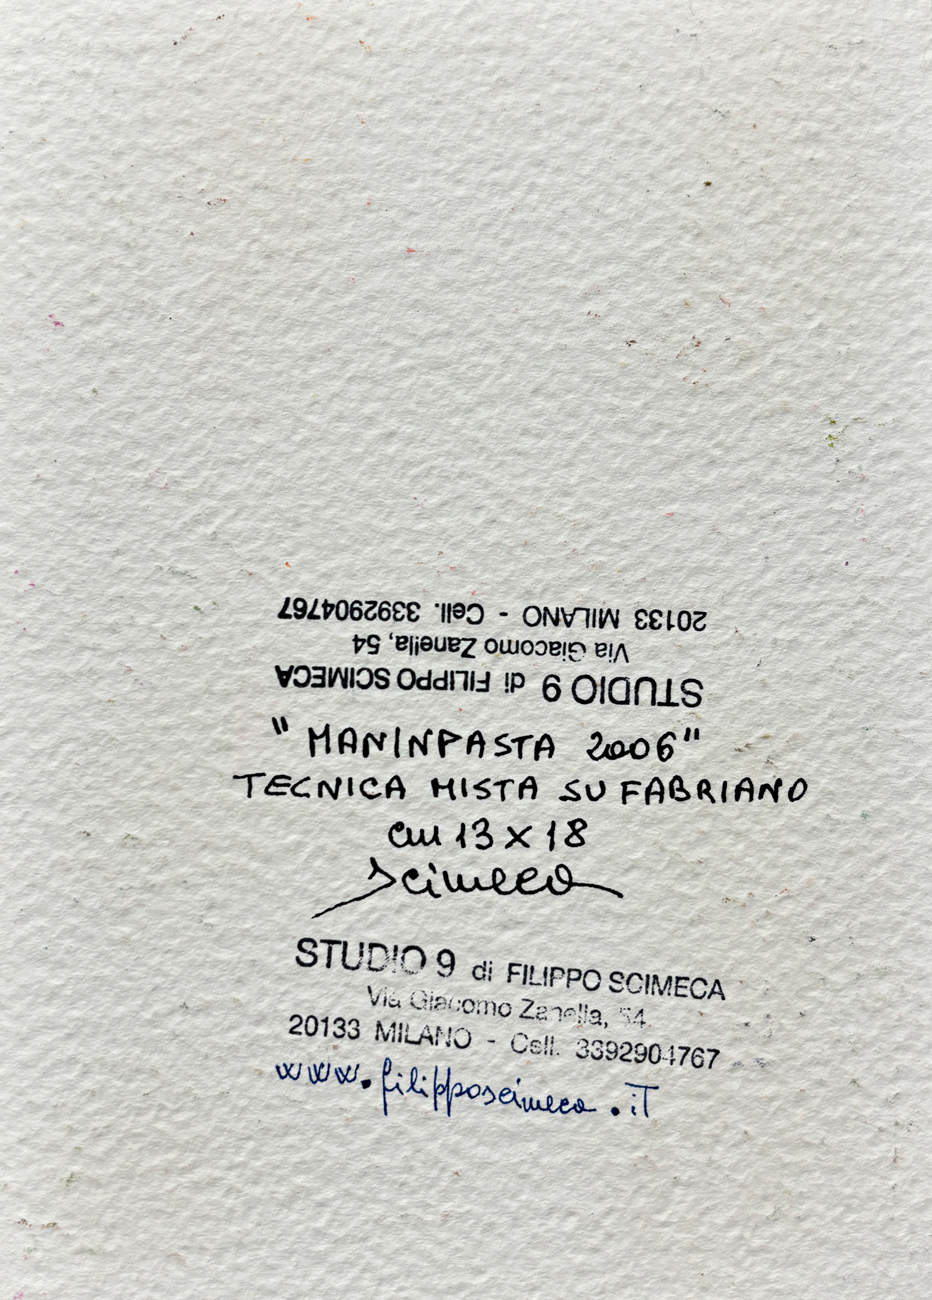 20133 MILANO - Cell. 3392904767
Via Giacomo Zanella, 54
STUDIO 9 di FILIPPO SCIMECA
"MANINPASTA 2006"
TECNICA MISTA SU FABRIANO
cm 13 x 18
Scimeca
STUDIO 9 di FILIPPO SCIMECA
Via Giacomo Zanella, 54
20133 MILANO - Cell. 3392904767
www.filipposcimeca.it